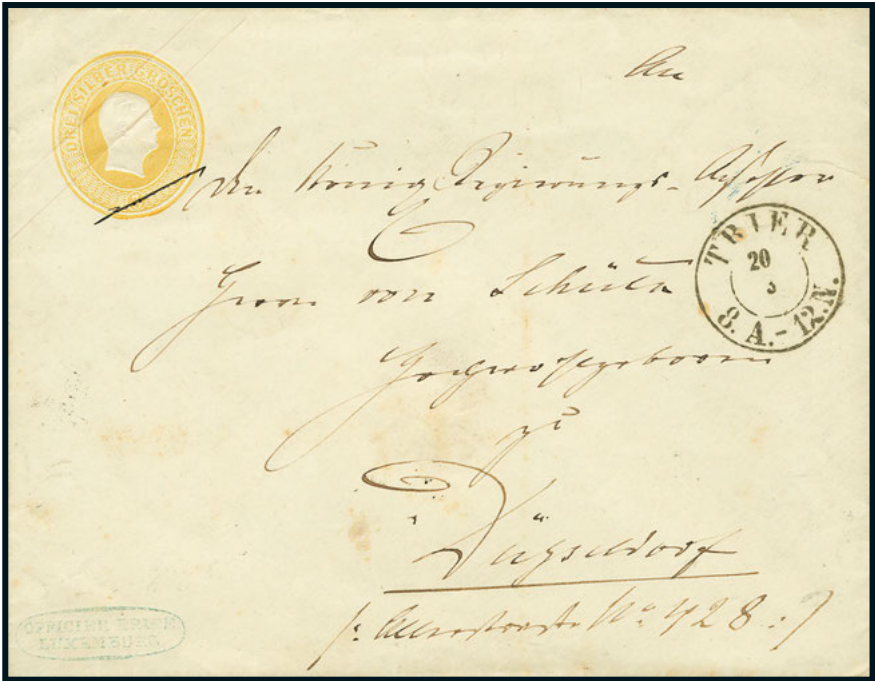 DREI SILBER GROSCHEN
An
den König Regierungs-Assessor
Herrn von
Hochwohlgeboren
zu
Düsseldorf
No 428 :/
TRIER
20
8. A. - 12. N.
OFFICIER BRIEF
LUXEMBURG